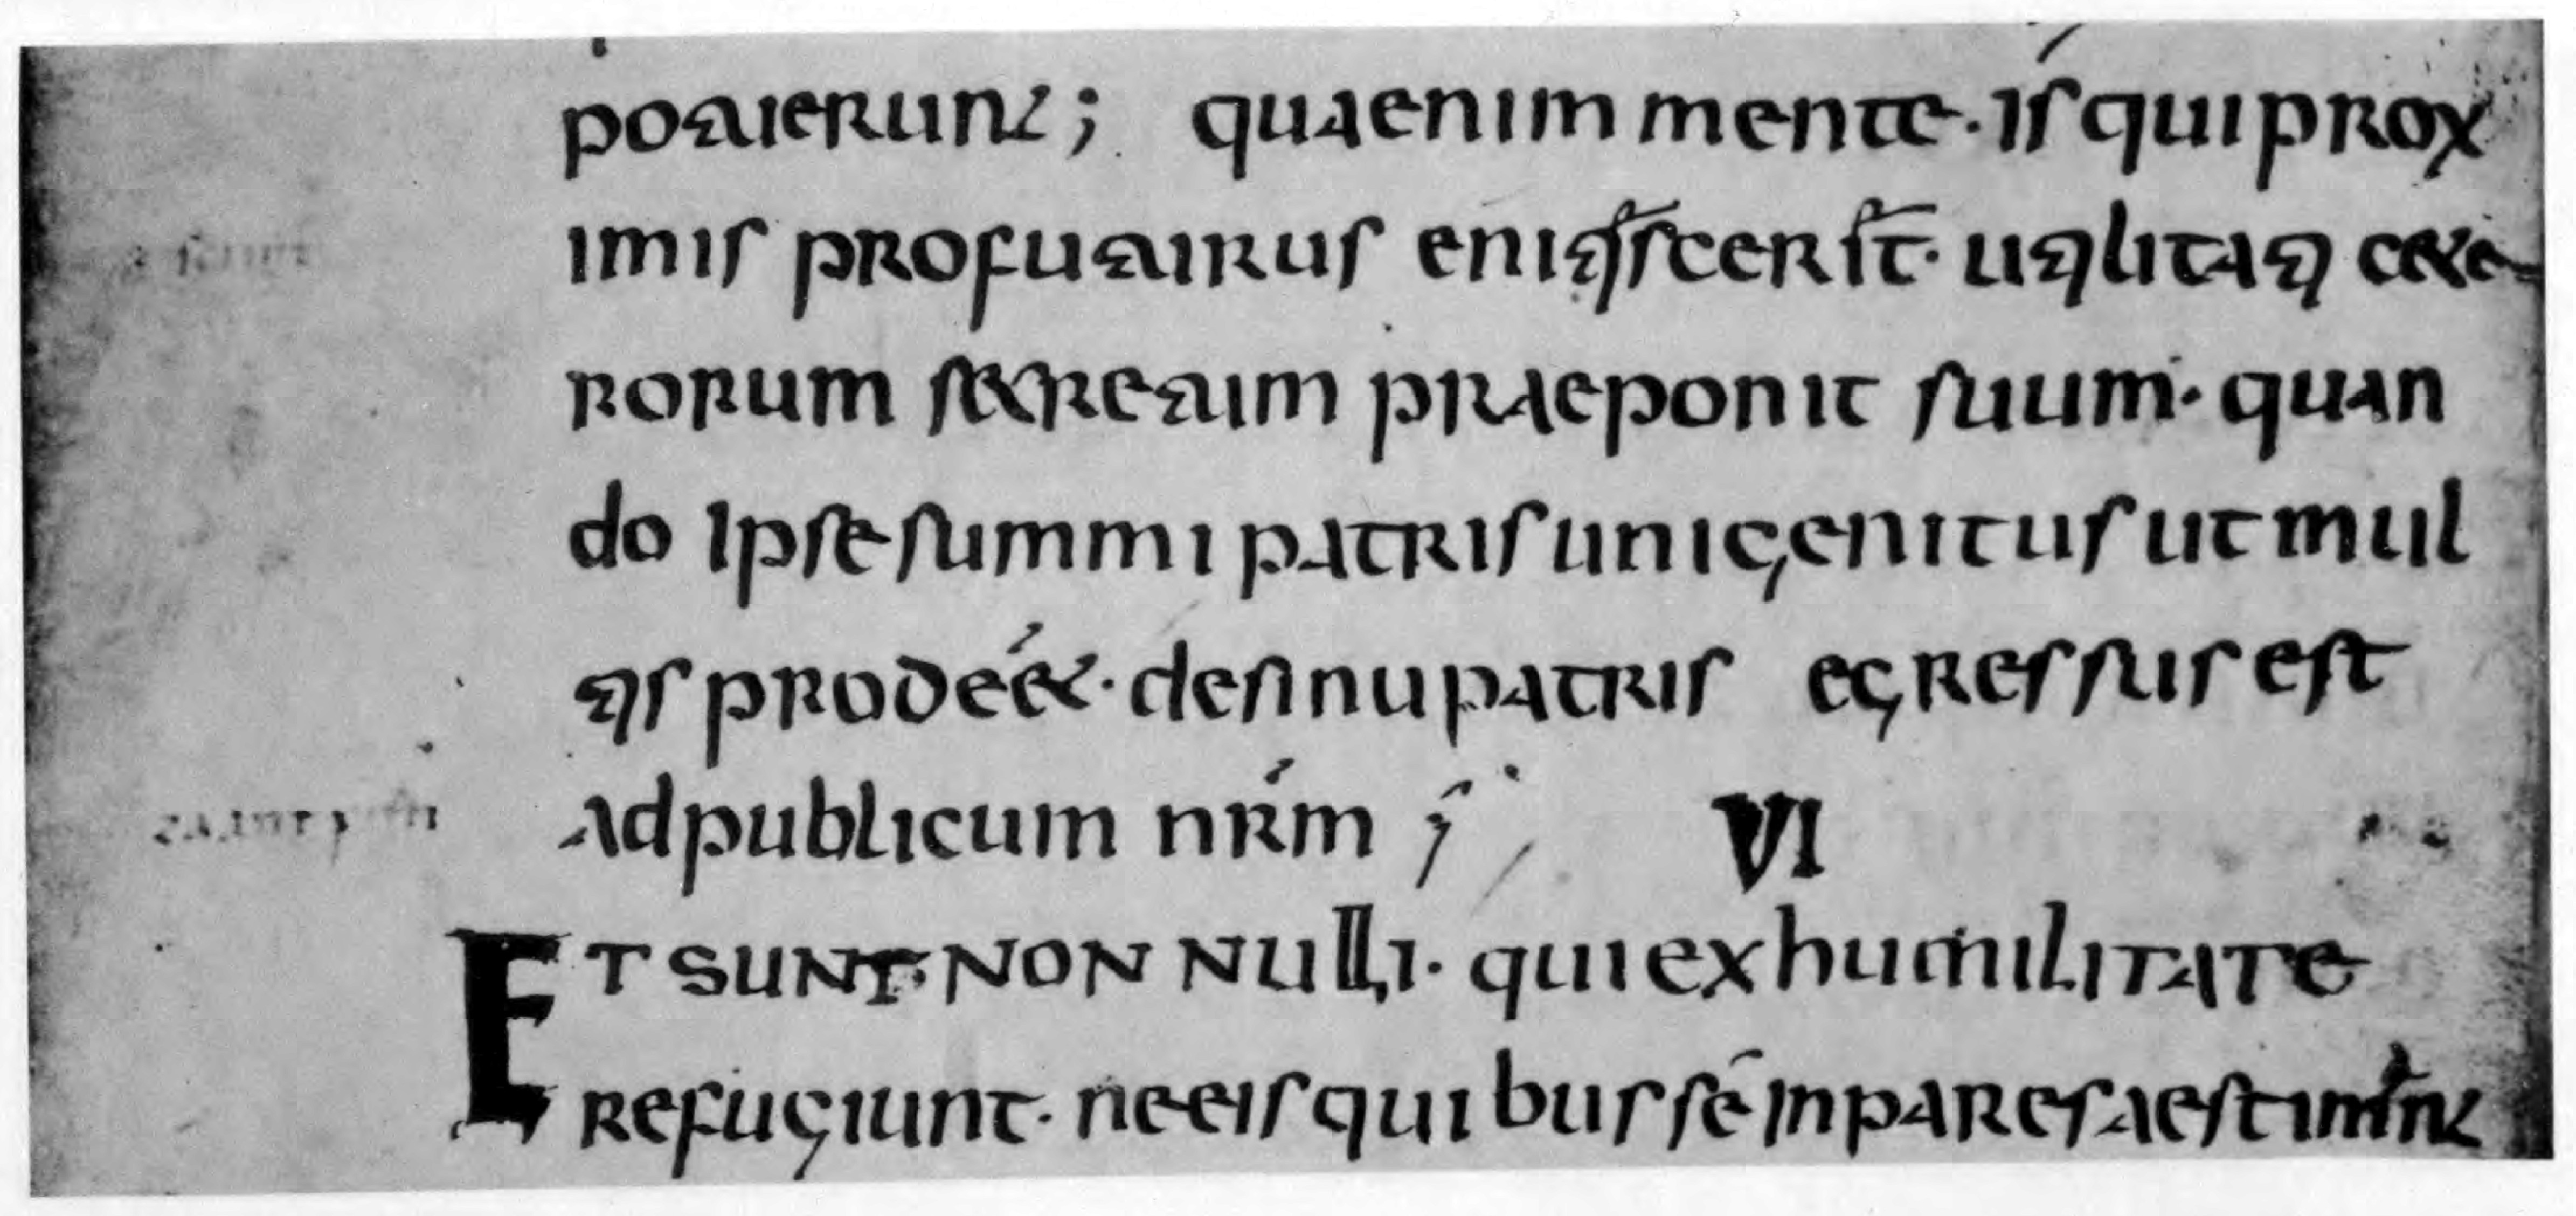 potuerunt; qua enim mente · is qui prox
imis profuturus enitiscer st̄ · utilitati cete
rorum secretum praeponit suum · quan
do ipse summi patris unigenitus ut mul
tis prodeé& · de sinu patris egressus est
ad publicum nr̄m ;
VI
ET SUNT NON NULLI · qui ex humilitate
refugiunt · ne eis quibus se inpares aestimant